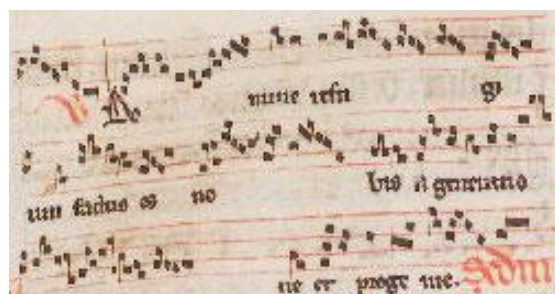 V Do mine refu gi
um factus es no bis a generatio
ne et proge nie. Scdm